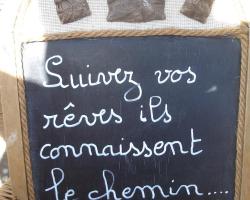 Suivez vos
rêves ils
connaissent
le chemin....